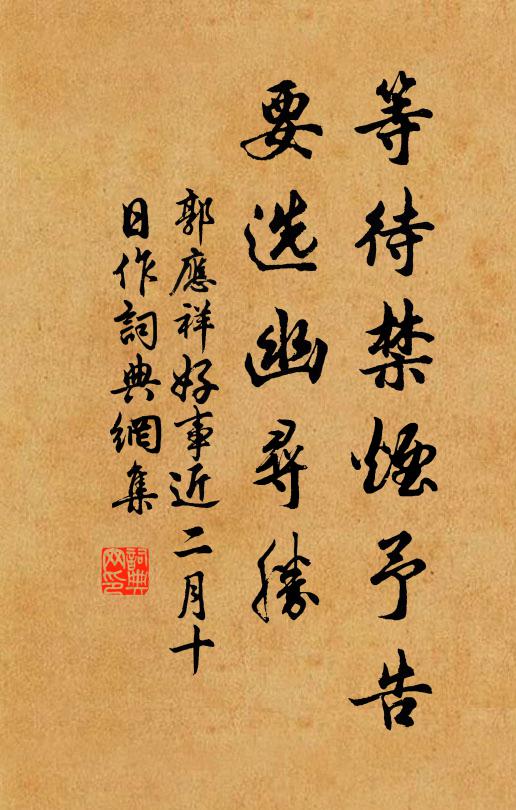 等待禁煙予告
要选幽尋勝
郭應祥好事近二月十
日作詞典網集
詞典网印